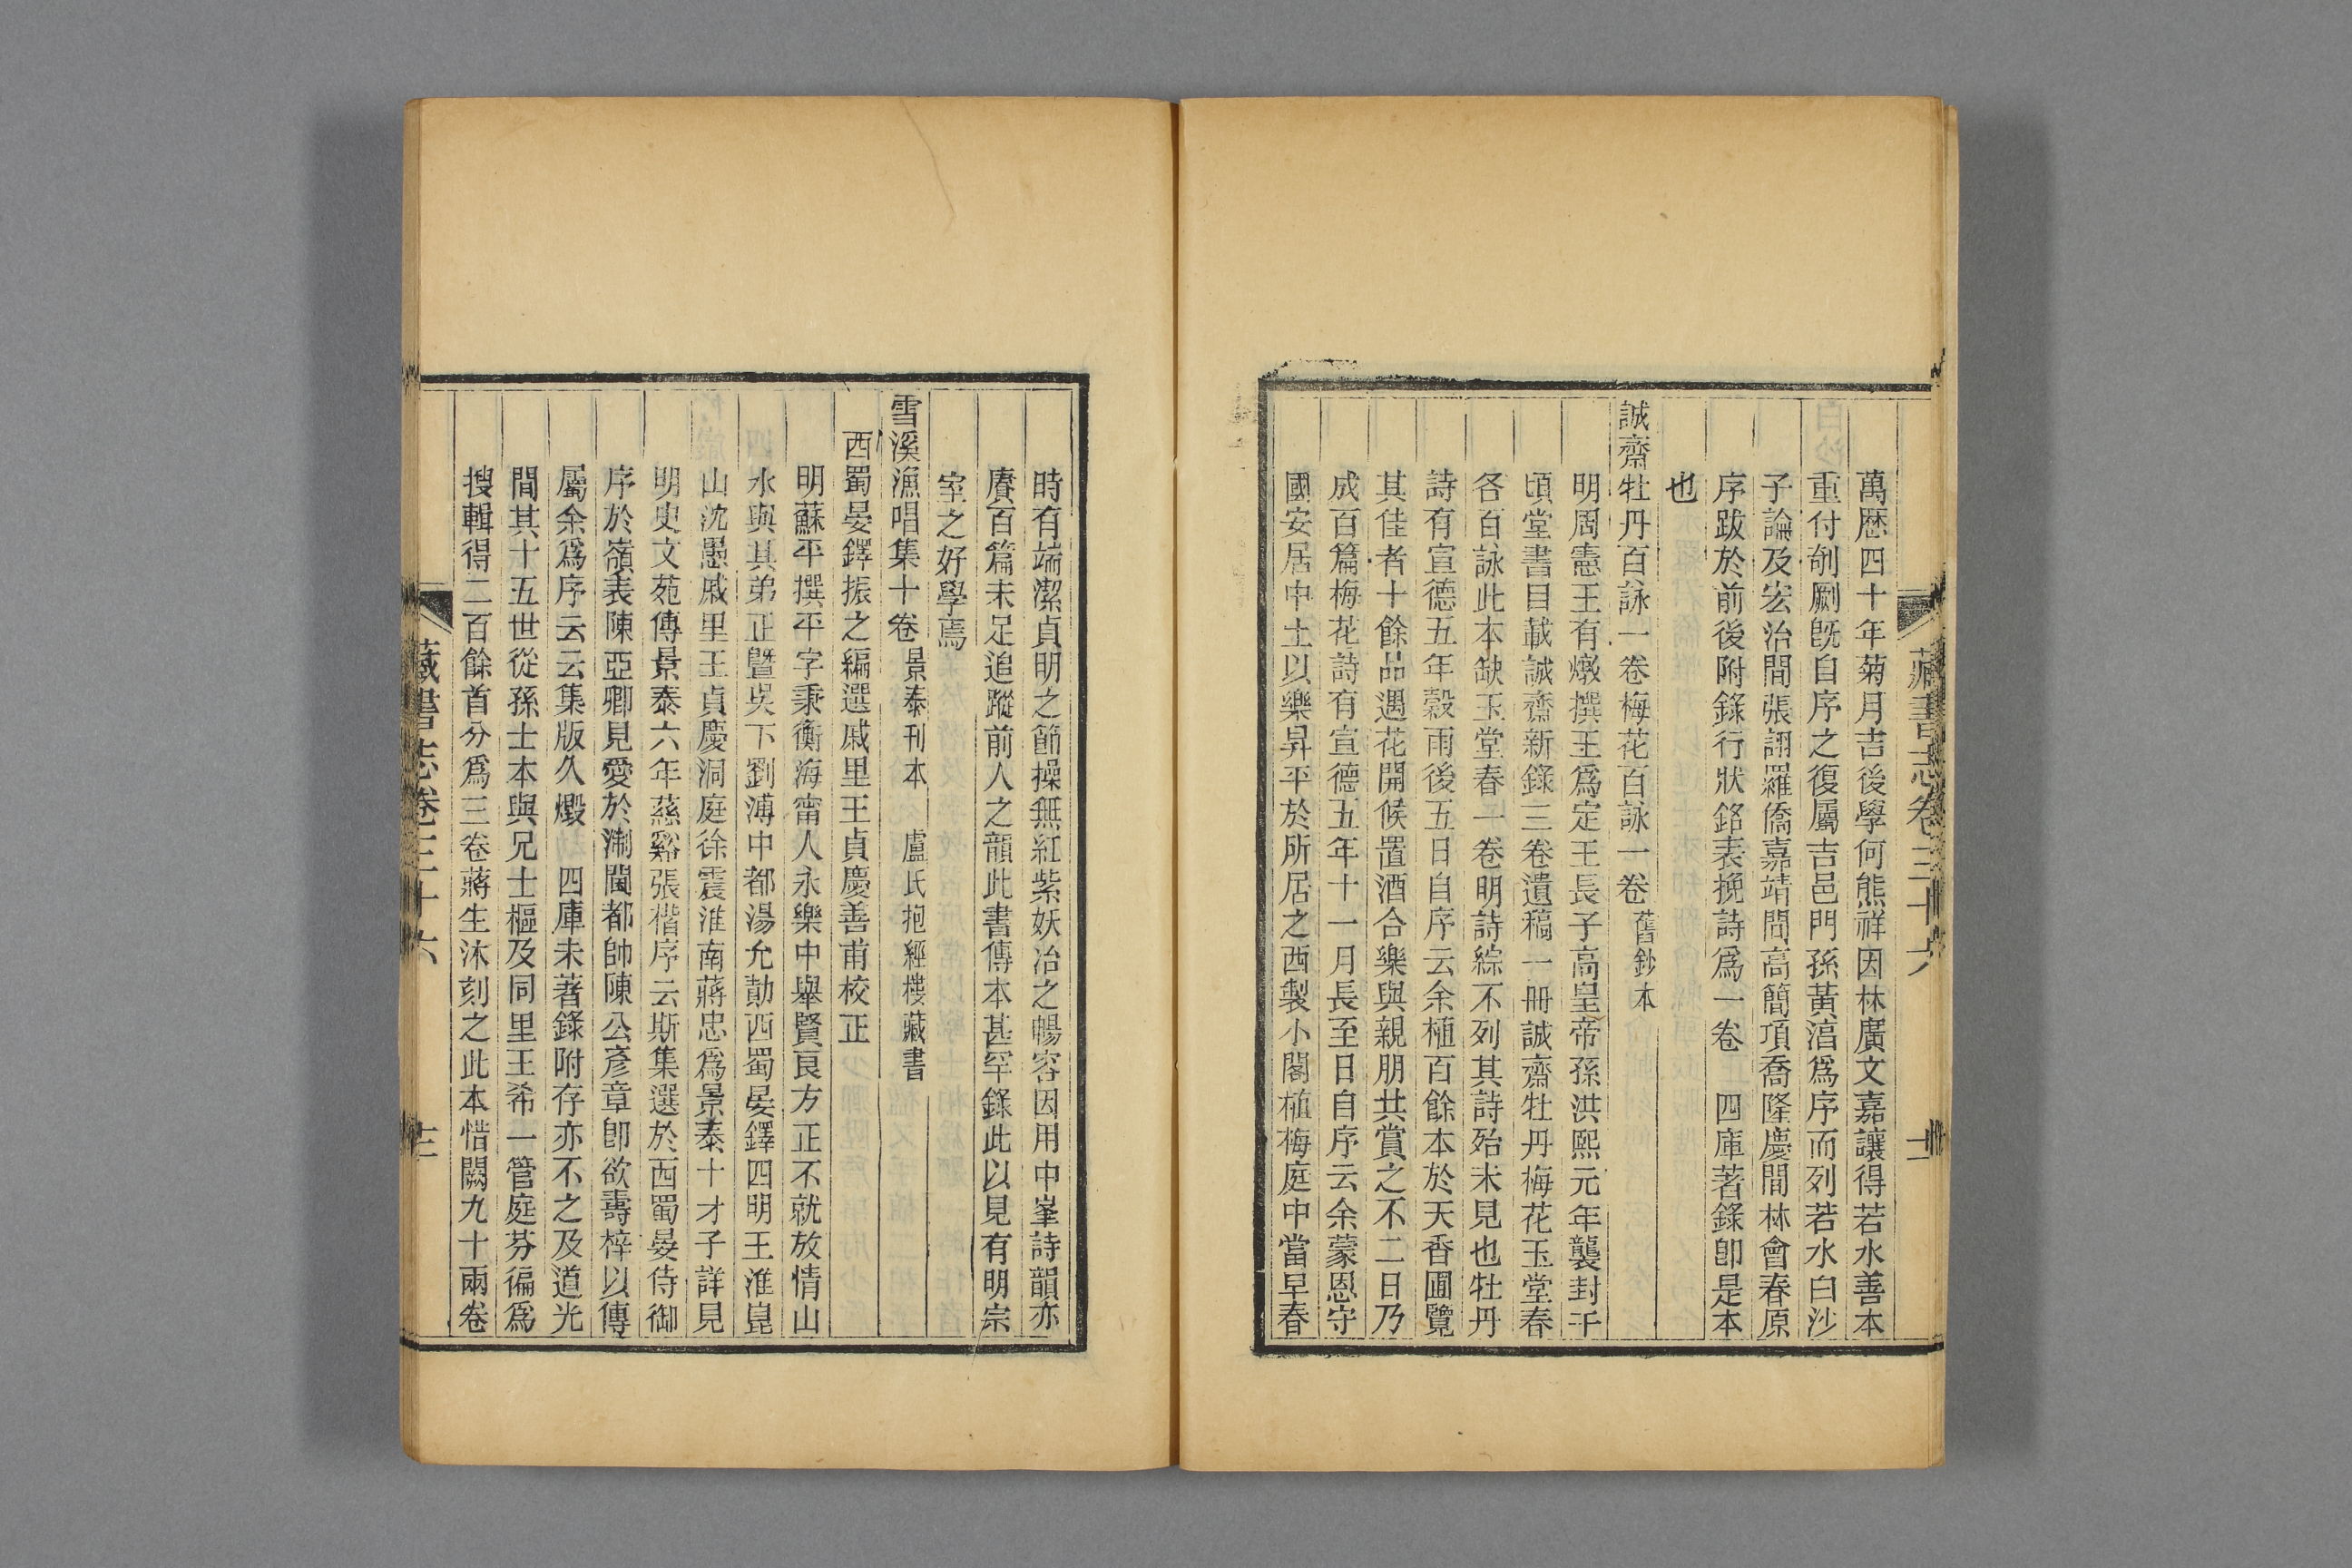 藏書志卷三十六
十二
萬歷四十年菊月吉後學何熊祥因林廣文嘉讓得若水善本
重付剞劂旣自序之復屬吉邑門孫黃湻爲序而列若水白沙
子論及宏治間張詡羅僑嘉靖間高簡項喬隆慶間林會春原
序跋於前後附錄行狀銘表挽詩爲一卷　四庫著錄卽是本
也
誠齋牡丹百詠一卷梅花百詠一卷 舊鈔本
明周憲王有燉撰王爲定王長子高皇帝孫洪熙元年襲封千
頃堂書目載誠齋新錄三卷遺稿一冊誠齋牡丹梅花玉堂春
各百詠此本缺玉堂春一卷明詩綜不列其詩殆未見也牡丹
詩有宣德五年穀雨後五日自序云余植百餘本於天香圃覽
其佳者十餘品遇花開候置酒合樂與親朋共賞之不二日乃
成百篇梅花詩有宣德五年十一月長至日自序云余蒙恩守
國安居中土以樂昇平於所居之西製小閣植梅庭中當早春
時有端潔貞明之節操無紅紫妖冶之暢容因用中峯詩韻亦
賡百篇未足追蹤前人之韻此書傳本甚罕錄此以見有明宗
室之好學焉
雪溪漁唱集十卷 景泰刊本　盧氏抱經樓藏書
西蜀晏鐸振之編選戚里王貞慶善甫校正
明蘇平撰平字秉衡海甯人永樂中舉賢良方正不就放情山
水與其弟正曁吳下劉溥中都湯允勣西蜀晏鐸四明王淮崑
山沈愚戚里王貞慶洞庭徐震淮南蔣忠爲景泰十才子詳見
明史文苑傳景泰六年慈谿張楷序云斯集選於西蜀晏侍御
序於嶺表陳亞卿見愛於淛閫都帥陳公彥章卽欲壽梓以傳
屬余爲序云云集版久燬　四庫未著錄附存亦不之及道光
間其十五世從孫士本與兄士樞及同里王希一管庭芬徧爲
搜輯得二百餘首分爲三卷蔣生沐刻之此本惜闕九十兩卷
藏書志卷三十六